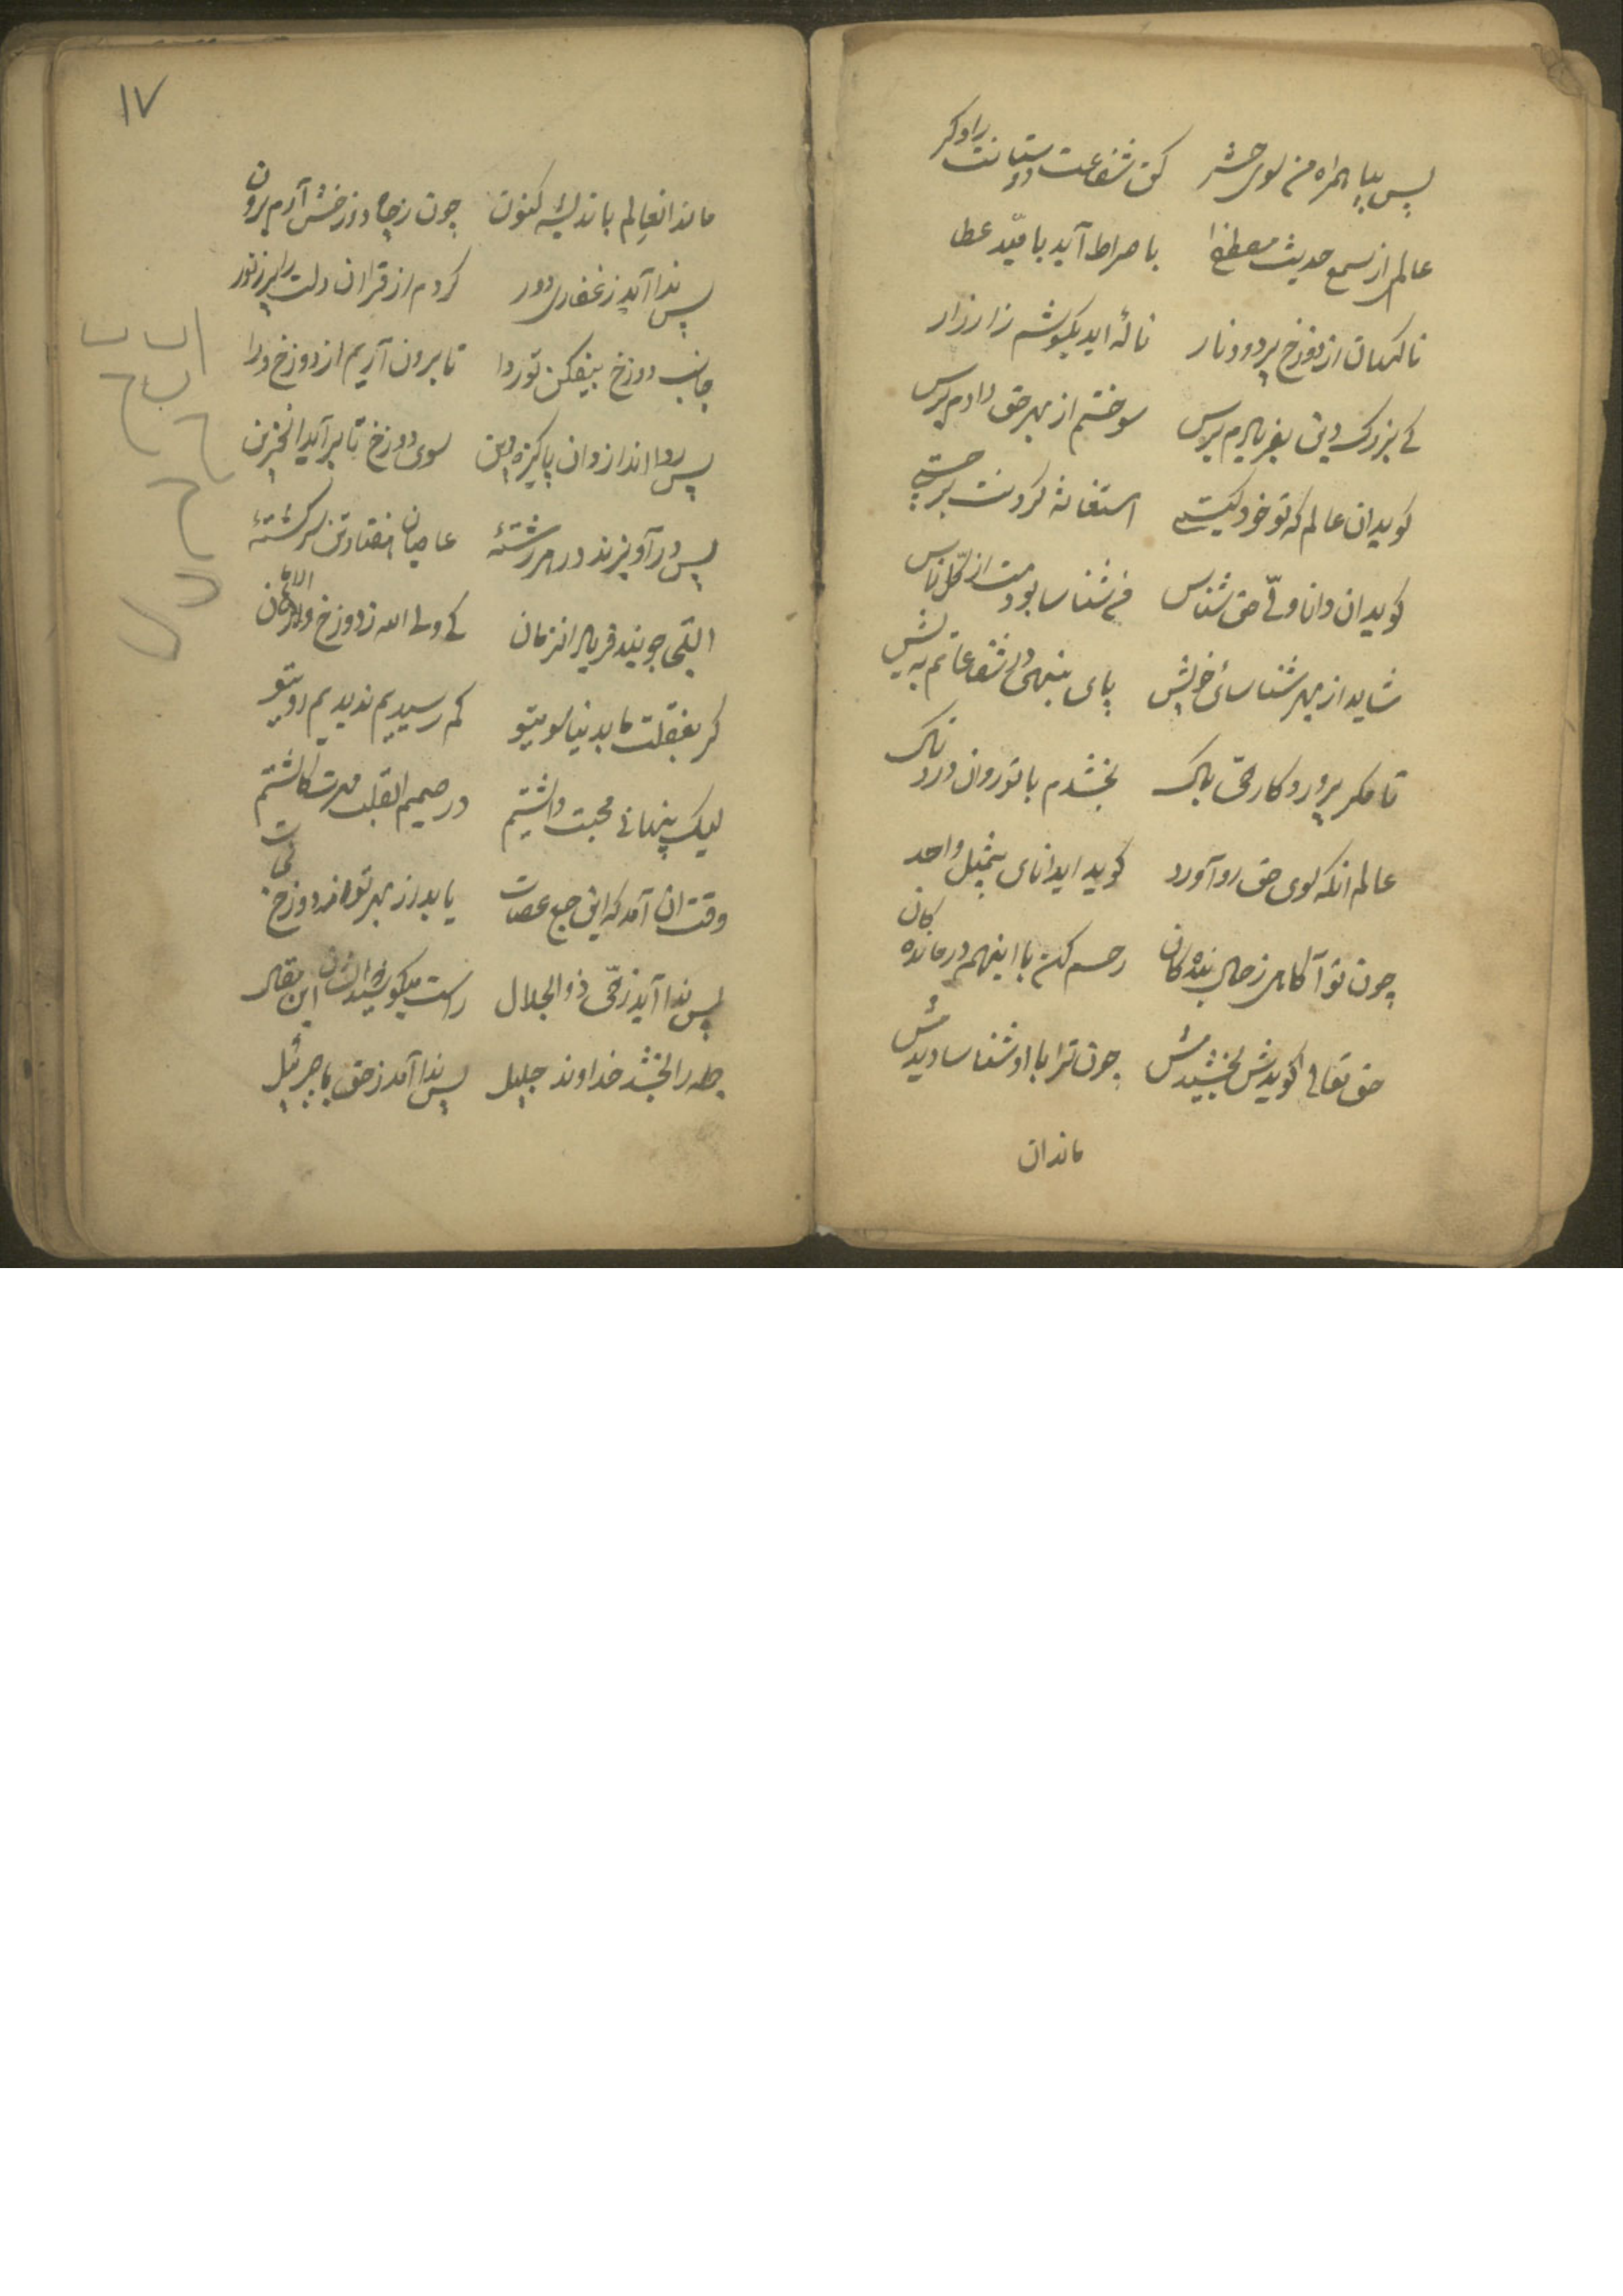 پس بیا همراه من سوی حشر کن شفاعت دوستانت را دکر
عالم از سمع حدیث مصطفا با صراط آید بامید عطا
ناکهان از دوزخ پر دود نار نالهٔ اید بکوشم زار زار
کے بزرک دین بفریادم برس سوختم از بهر حق دادم برس
کوید ان عالم که تو خود کیستے استغاثه کردنت بر چیستے
کوید ان دانا ولیّ حق شناس شناسا بودمت از کل ناس
شاید از بهر شناسائ خویش پای بنهی شفاعاتم به پیش
تا مکر پروردکار حیّ پاک بخشدم با تو روان دردناک
عالم انکه سوی حق رو آورد کوید ای دانای بیمثل واحد
چون تو آکاهی ز حال بنده کان رحم کن با اینهم درمانده کان
حق تعالی کویدش بخشیدمش چون ترا با او شناسا دیدمش
ماندان
۱۷
ماند انعالم باندیشه کنون چون ز چاه دوزخش آرم برون
پس ندا آید ز غفاری دور کردم از قران دلت را پر ز نور
جانب دوزخ بیفکن تو ردا تا برون آریم از دوزخ ورا
پس ردا اندازد ان پاکیزه دین سوی دوزخ تا برآید انحزین
پس درآویزند در هر رشتهٔ عاصیان هفتاد تن سرکشتهٔ
التجی جویند فریاد انزمان کے ولی الله ز دوزخ الامان
کر بغفلت ما بدنیا سویتو کم رسیدیم ندیدیم رویتو
لیک پنهانی محبت داشتیم در صمیم القلب مهرت کاشتیم
وقت ان آمد که این جمع عصات یابد از بهر تو از دوزخ نجات
پس ندا آید ز حیّ ذو الجلال راست میکویند این مقال
جمله را بخشد خداوند جلیل پس ندا آمد ز حق با جبرئیل